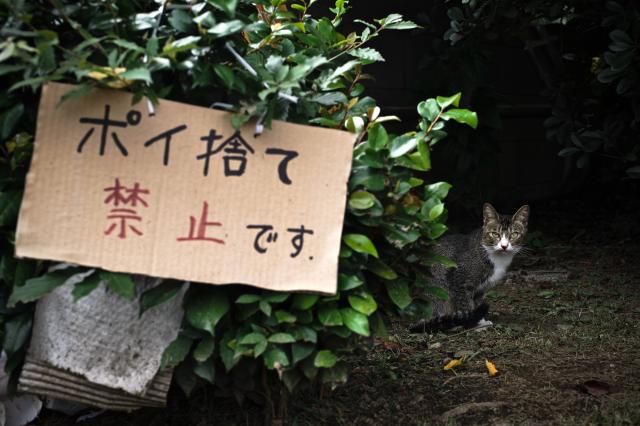 ポイ捨て
禁止です.